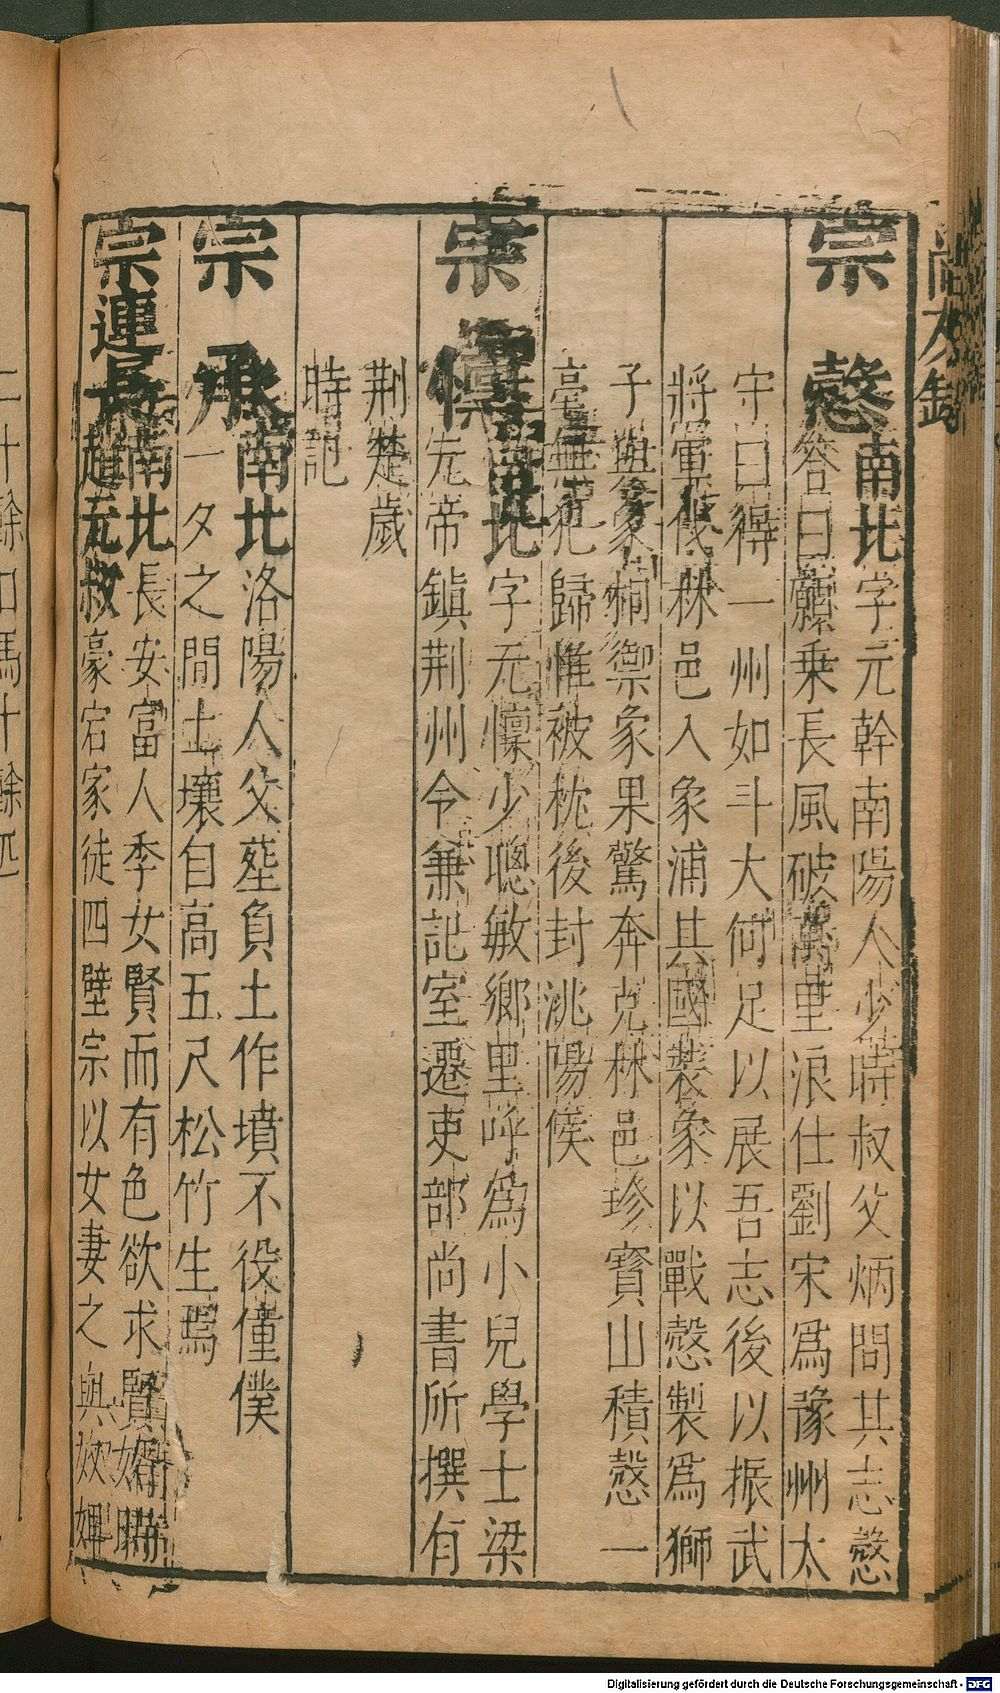 宗慤南北字元幹南陽人少時叔父炳問其志慤
荅曰願乗長風破萬里浪仕劉宋爲豫州太
守曰得一州如斗大何足以展吾志後以振武
將軍伐林邑入象浦其國裝象以戰慤製爲獅
子與象相禦象果驚奔克林邑珍寳山積慤一
毫無犯歸惟被枕後封洮陽侯
宗懍南北字元懍少聰敏鄉里呼爲小兒學士梁
先帝鎮荆州令兼記室遷吏部尚書所撰有
荆楚歲
時記
宗承南北洛陽人父塟負土作墳不役僮僕
一夕之間土壤自高五尺松竹生焉
宗連南北長安富人季女賢而有色欲求賢
趙元叔豪宕家徒四壁宗以女妻之與奴婢
二十餘口馬十餘匹
尚友錄
Digitalisierung gefördert durch die Deutsche Forschungsgemeinschaft - DFG